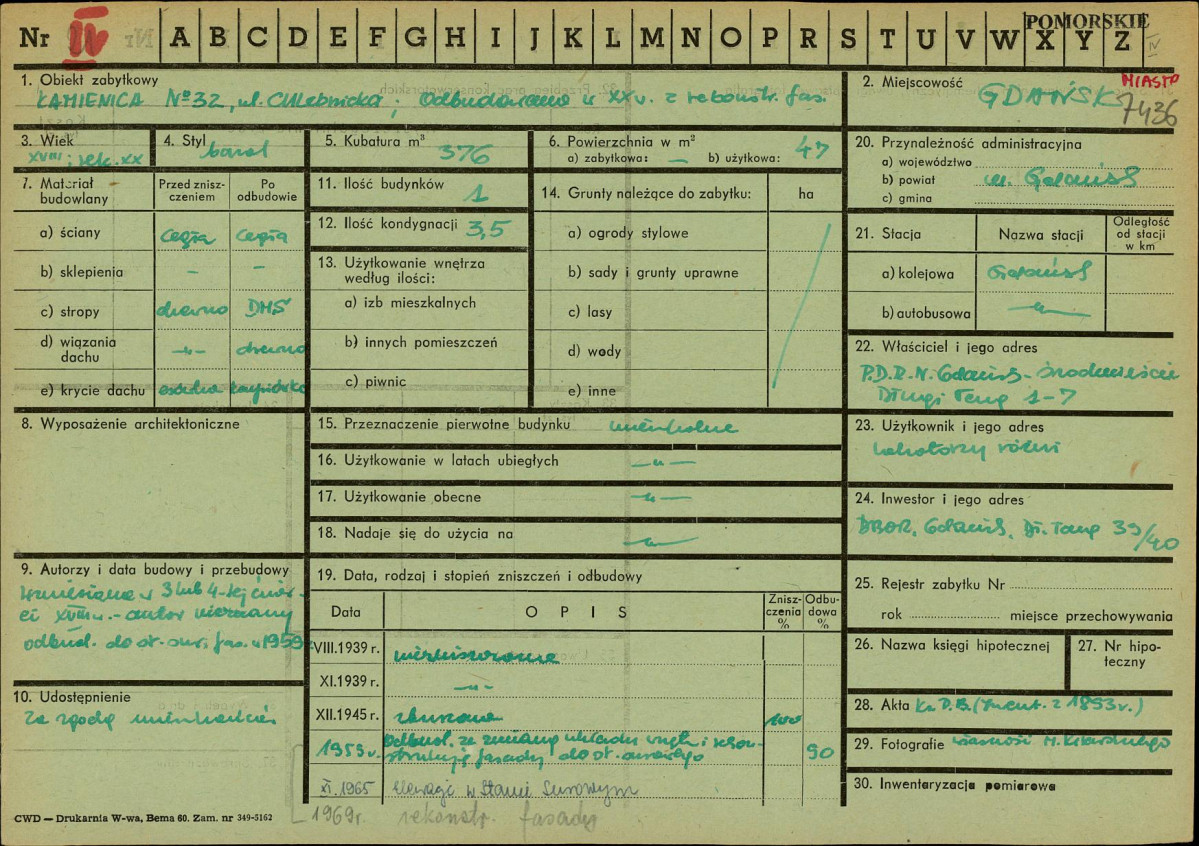 POMORSKIE
Nr IV A B C D E F G H I J K L M N O P R S T U V W X Y Z IV
1. Obiekt zabytkowy
KAMIENICA Nº 32, ul. Chlebnicka; Odbudowana w XX w. z rekonstr. fas.
2. Miejscowość GDAŃSK
MIASTO
7436
3. Wiek
XVIII; rek. XX
4. Styl
barok
5. Kubatura m³
376
6. Powierzchnia w m²
a) zabytkowa: — b) użytkowa: 47
20. Przynależność administracyjna
a) województwo
b) powiat m. Gdańsk
c) gmina
7. Materiał budowlany
Przed zniszczeniem
Po odbudowie
a) ściany cegła cegła
b) sklepienia – –
c) stropy drewno DMS
d) wiązania dachu -„- drewno
e) krycie dachu
11. Ilość budynków
1
12. Ilość kondygnacji 3,5
13. Użytkowanie wnętrza według ilości:
a) izb mieszkalnych
b) innych pomieszczeń
c) piwnic
14. Grunty należące do zabytku: ha
a) ogrody stylowe
b) sady i grunty uprawne
c) lasy
d) wody
e) inne
21. Stacja
Nazwa stacji
Odległość od stacji w km
a) kolejowa Gdańsk
b) autobusowa —„—
22. Właściciel i jego adres
P.D.R.N. Gdańsk - Środmieście
Długi Targ 1-7
8. Wyposażenie architektoniczne
15. Przeznaczenie pierwotne budynku mieszkalne
16. Użytkowanie w latach ubiegłych —„—
17. Użytkowanie obecne —„—
18. Nadaje się do użycia na —„—
23. Użytkownik i jego adres
lokatorzy różni
24. Inwestor i jego adres
DBOR, Gdańsk, Dł. Targ 39/40
9. Autorzy i data budowy i przebudowy
Wzniesiona w 3 lub 4-tej ćwier-
ci XVIII w. - autor nieznany
odbud. do st. sur. fas. w 1959
19. Data, rodzaj i stopień zniszczeń i odbudowy
Data
OPIS
Zniszczenia %
Odbudowa %
VIII.1939 r. niezniszczona
XI.1939 r. —„—
XII.1945 r. zburzona 100
1959 r. Odbud. ze zmianą układu wnętrz i rekon-
strukcją fasady do st. surowego 90
XI.1965 elewacja w stanie surowym
1969r. rekonstr. fasady
25. Rejestr zabytku Nr
rok miejsce przechowywania
26. Nazwa księgi hipotecznej
27. Nr hipoteczny
10. Udostępnienie
Za zgodą mieszkańców
28. Akta Ks. P.B. (Invent. z 1853 r.)
29. Fotografie własność
30. Inwentaryzacja pomiarowa
CWD — Drukarnia W-wa, Bema 60. Zam. nr 349-5162